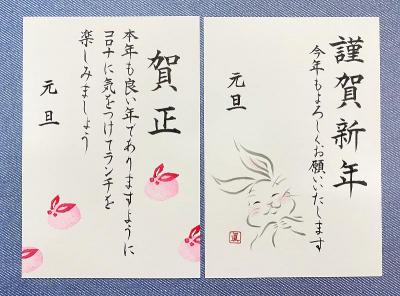 謹賀新年
今年もよろしくお願いいたします
元旦
賀正
本年も良い年でありますように
コロナに気をつけてランチを
楽しみましょう
元旦